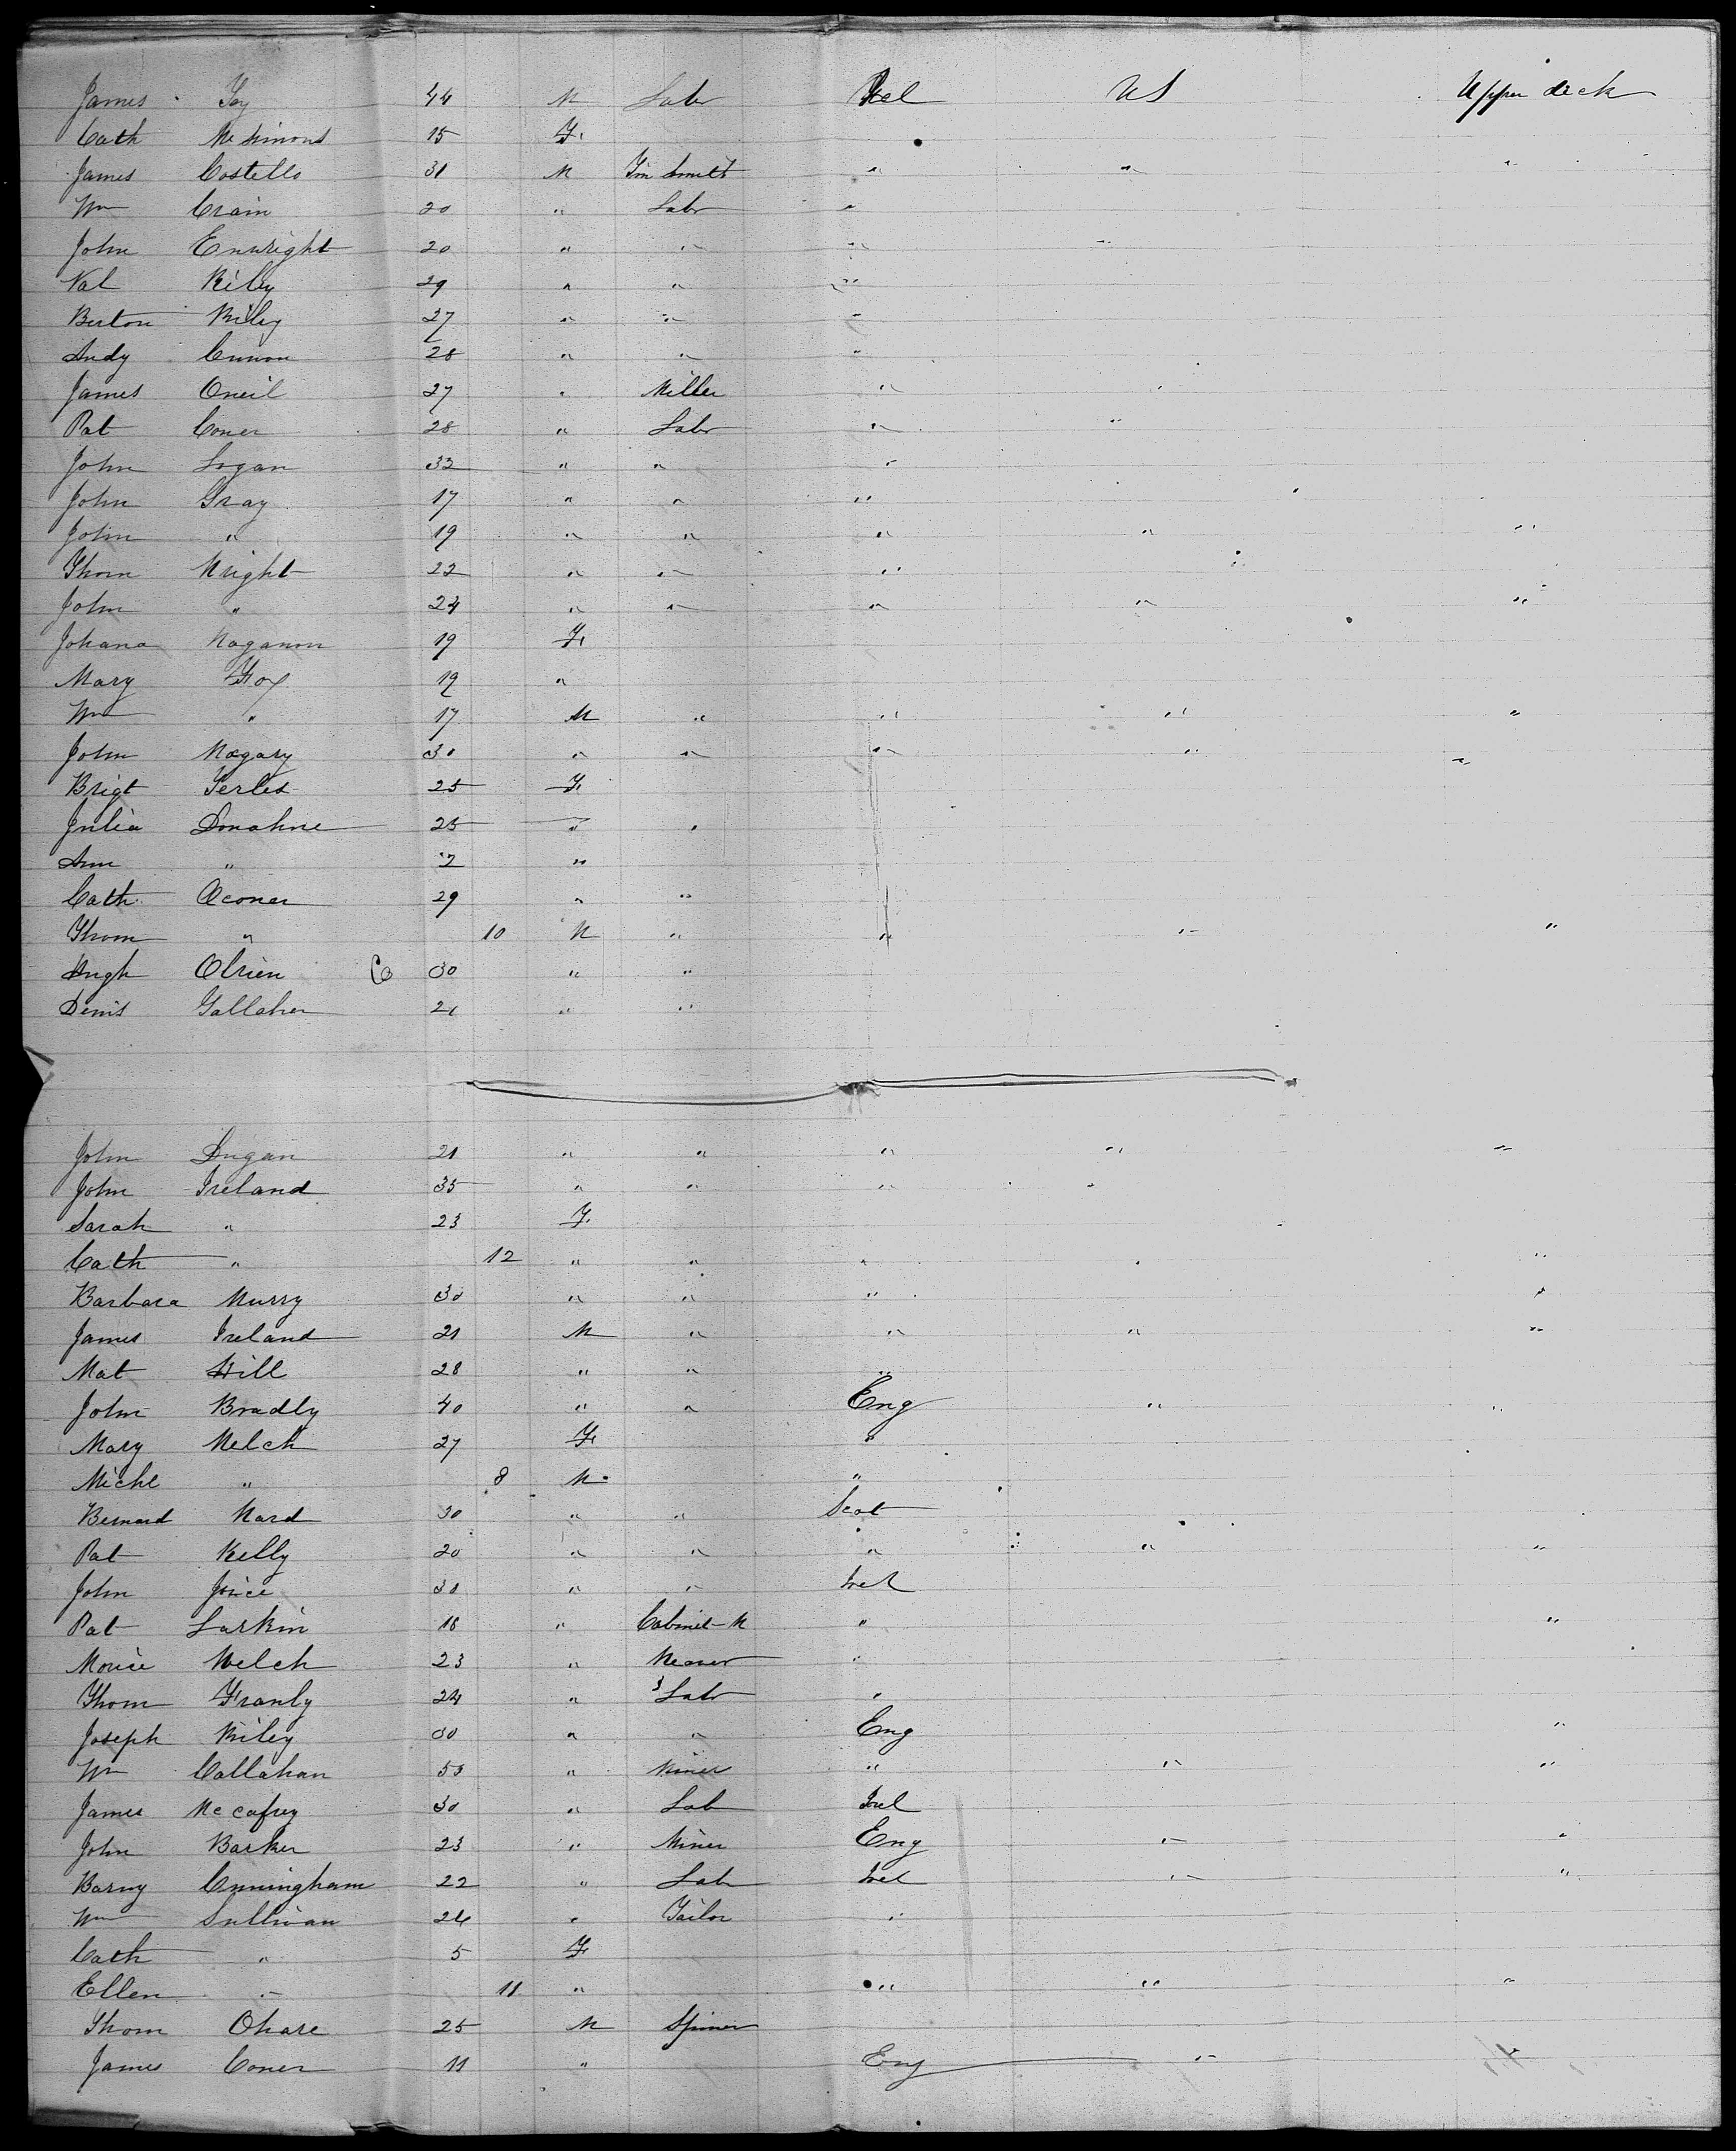 James Foy 44 M Labr Irel US Upper deck
Cath McSimons 15 F.
James Costello 31 M Tin Smith " " "
Wm Crain 20 " Labr "
John Enwright 20 " " " "
Val Riley 29 " " "
Burton Riley 27 " " "
Andy Cunnon 28 " " "
James Oneil 27 " Miller " "
Pat Coner 28 " Labr " "
John Logan 32 " " "
John Gray 17 " " "
John " 19 " " " " "
Thom Wright 22 " " "
John " 24 " " " " "
Johana Naganon 19 F.
Mary Fox 19 "
Wm " 17 M " " " "
John Magary 30 " " " " "
Brigt Ferles 25 F.
Julia Donahue 25 "
Ann " 2 "
Cath Oconer 29 " "
Thom " 10 M " " " "
Hugh Obrien 30 " "
Denis Gallaher 21 " "
John Dugan 21 " " " " "
John Ireland 35 " " " "
Sarah " 23 F.
Cath " 12 " " " " "
Barbara Murry 30 " " " "
James Ireland 21 M " " " "
Mat Hill 28 " " "
John Bradly 40 " " Eng " "
Mary Welch 27 F. "
Michl " 8 M. "
Bernard Ward 30 " " Scot
Pat Kelly 20 " " " " "
John Joice 30 " " Irel
Pat Larkin 18 " Cabinet-M " "
Morice Welch 23 " Weaver "
Thom Franly 24 " Labr "
Joseph Riley 30 " " Eng "
Wm Callahan 53 " Miner " " "
James Mccafrey 30 " Lab Irel
John Barker 23 " Miner Eng " "
Barny Cunningham 22 " Lab Irel " "
Wm Sullivan 24 " Tailor "
Cath " 5 F
Ellen " 11 " " " "
Thom Ohare 25 M Spiner
James Coner 11 " Eng " "